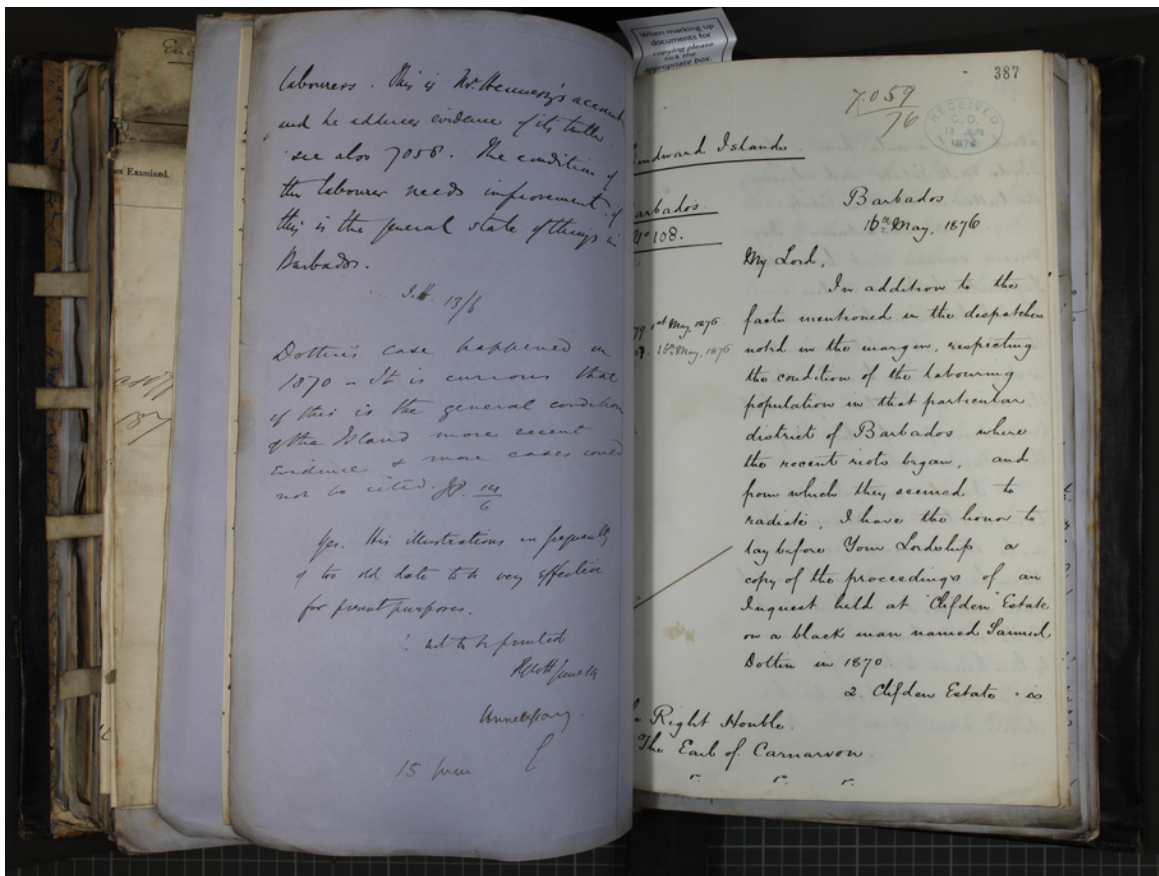 Enc
es Examined.
labourers. This is Mr. Hennessy's account
and he adduces evidence of its truth.
see also 7058. The condition of
the labourer needs improvement if
this is the general state of things in
Barbados.
13/6
Dottin's case happened in
1870 – It is curious that
if this is the general condition
of the Island more recent
evidence & more cases could
not be cited. 14/6
Yes. His illustrations are frequently
of too old date to be very effective
for present purposes.
? not to be printed
June 14
Unnecessary.
C
15 June
When marking up
documents for
copying please
tick the
appropriate box.
387
7059
76
RECEIVED
C.O.
13 JUN
1876
indward Islands.
arbados.
No 108.
Barbados
16th May, 1876
My Lord,
In addition to the
facts mentioned in the despatches
79. 1st May, 1876.
07. 16th May, 1876.
noted in the margin, respecting
the condition of the labouring
population in that particular
district of Barbados where
the recent riots began, and
from which they seemed to
radiate, I have the honor to
lay before Your Lordship a
copy of the proceedings of an
Inquest held at "Clifden" Estate
on a black man named Samuel
Dottin in 1870
2. Clifden Estate is
Right Honble.
The Earl of Carnarvon